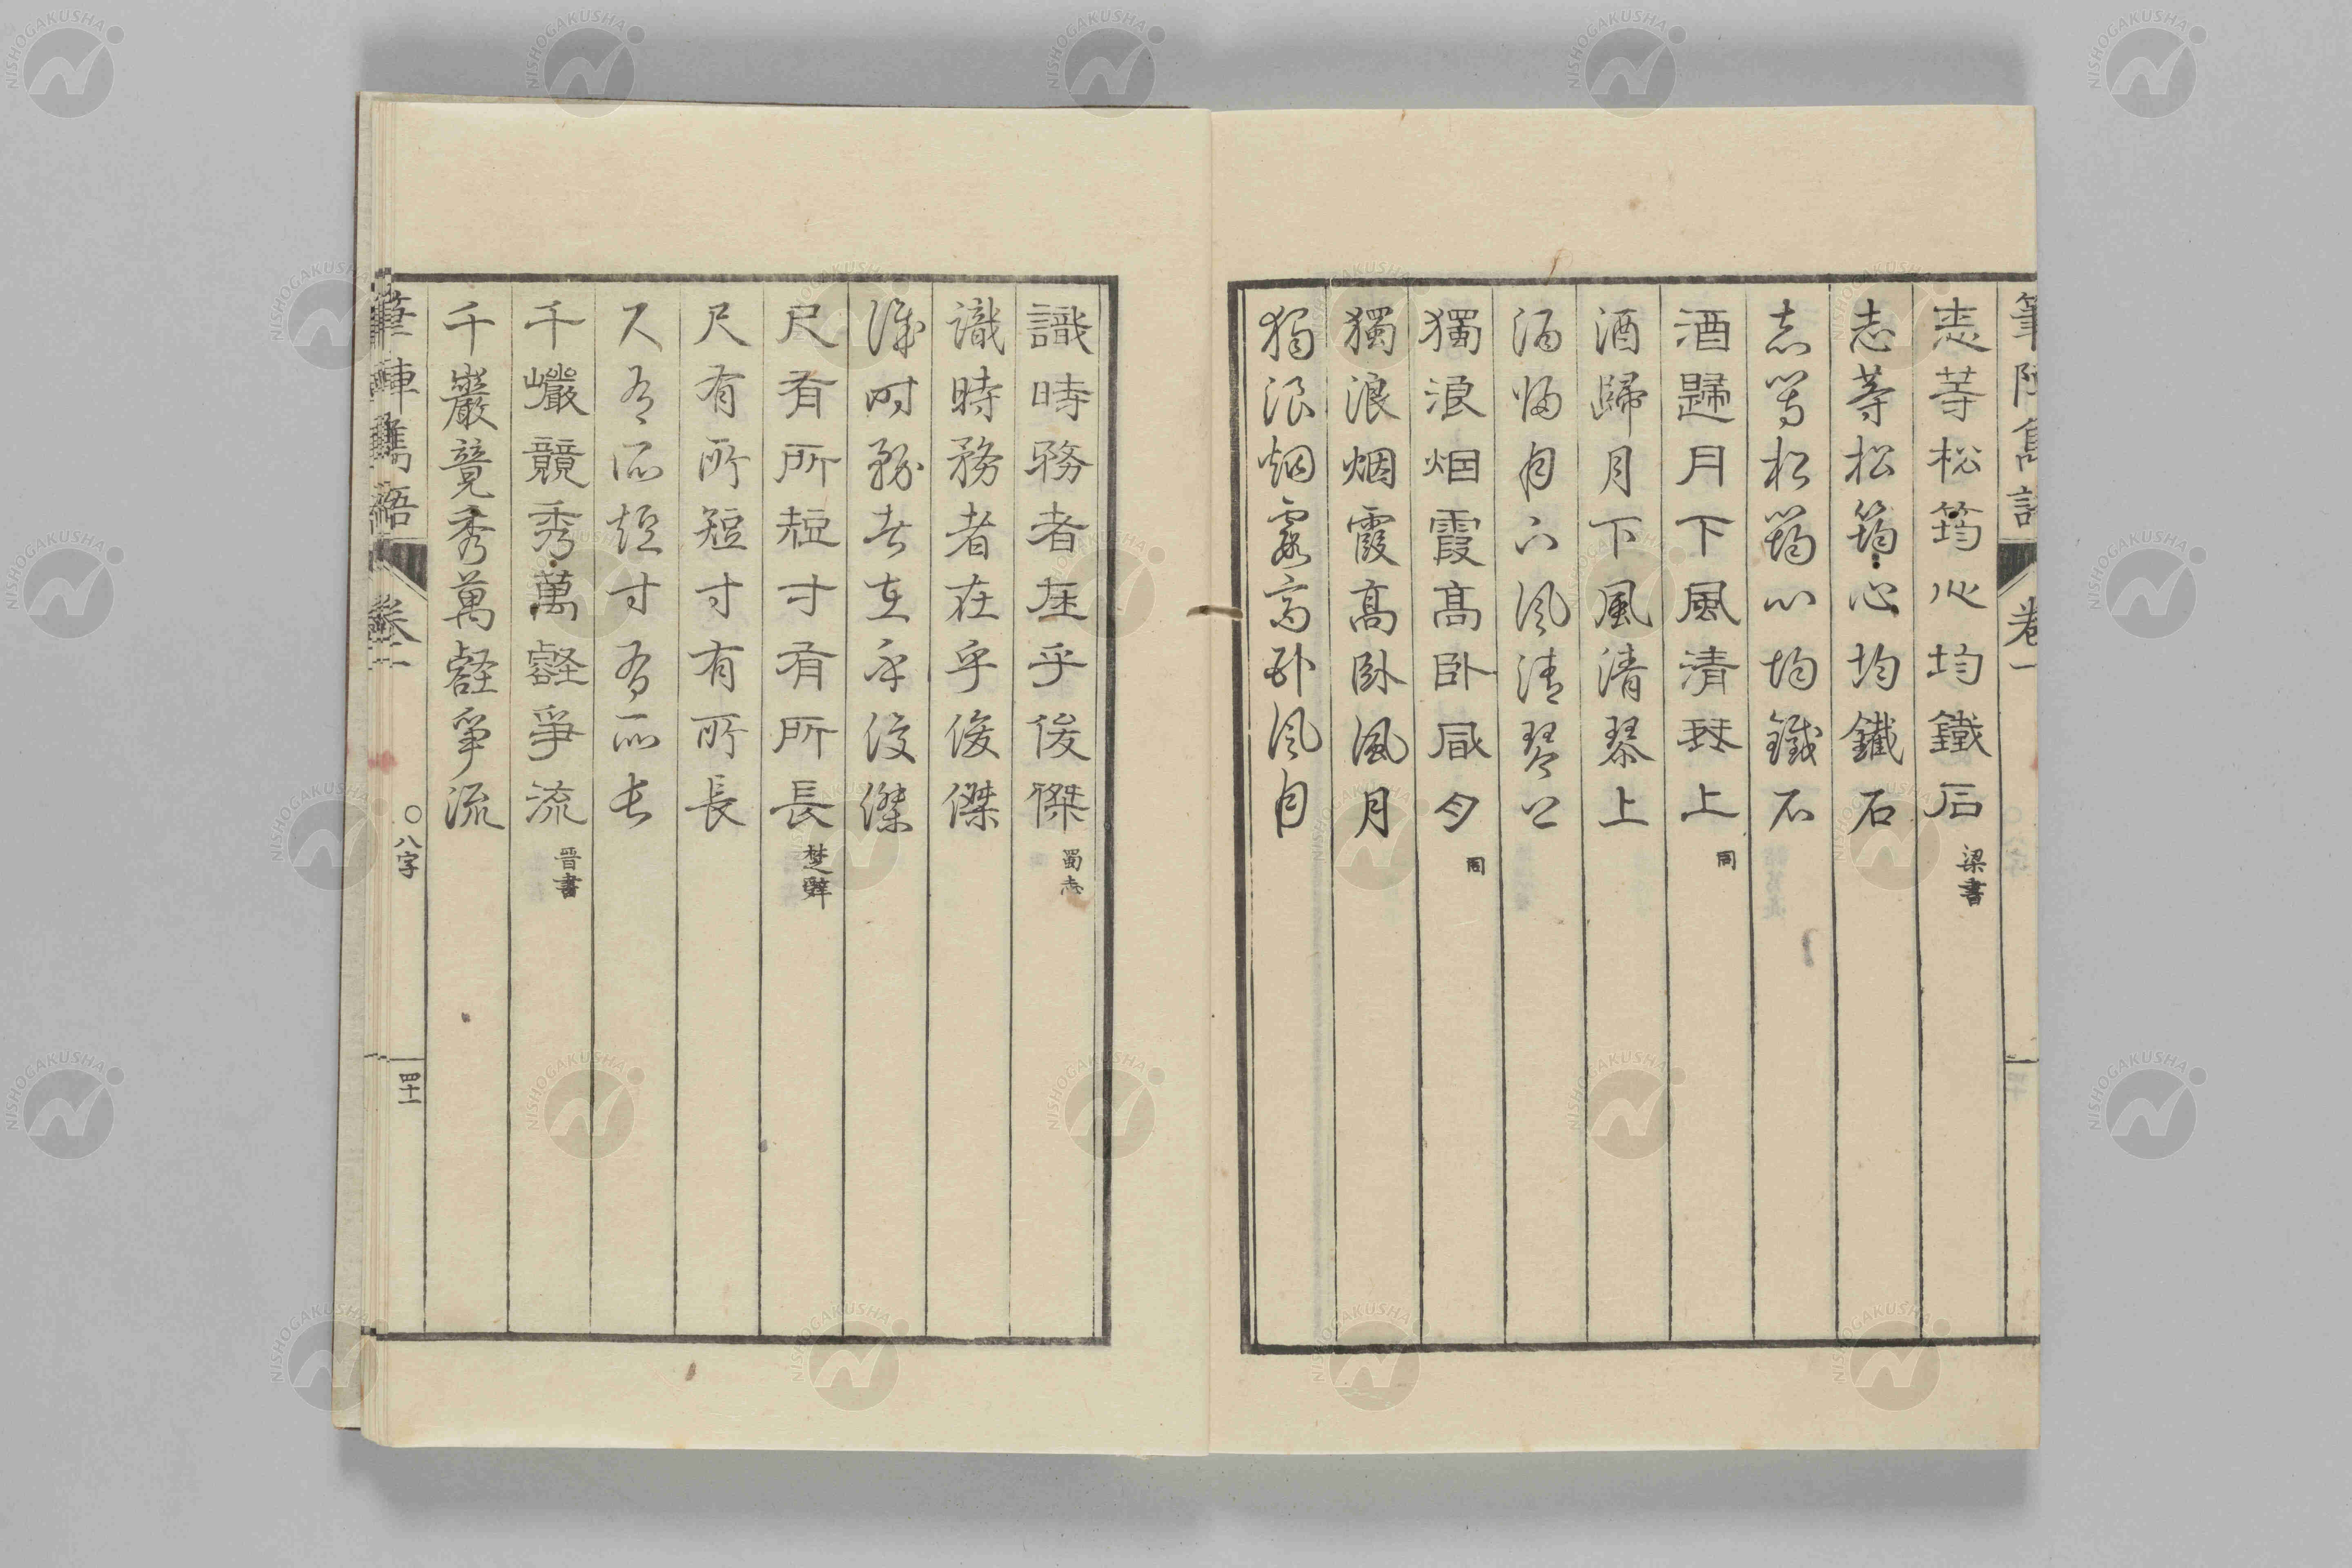 筆陣雋語 卷一
志等松筠心均鐵石 梁書
志等松筠心均鐵石
志等松筠心均鐵石
酒歸月下風清琴上 同
酒歸月下風清琴上
酒歸月下風清琴上
獨浪烟霞高臥風月 同
獨浪烟霞高臥風月
獨浪烟霞高臥風月
識時務者在乎俊傑 蜀志
識時務者在乎俊傑
識時務者在乎俊傑
尺有所短寸有所長 楚辭
尺有所短寸有所長
尺有所短寸有所長
千巖競秀萬壑爭流 晋書
千巖競秀萬壑爭流
筆陣雋語 卷一 〇八字 四十一
NISHOGAKUSHA